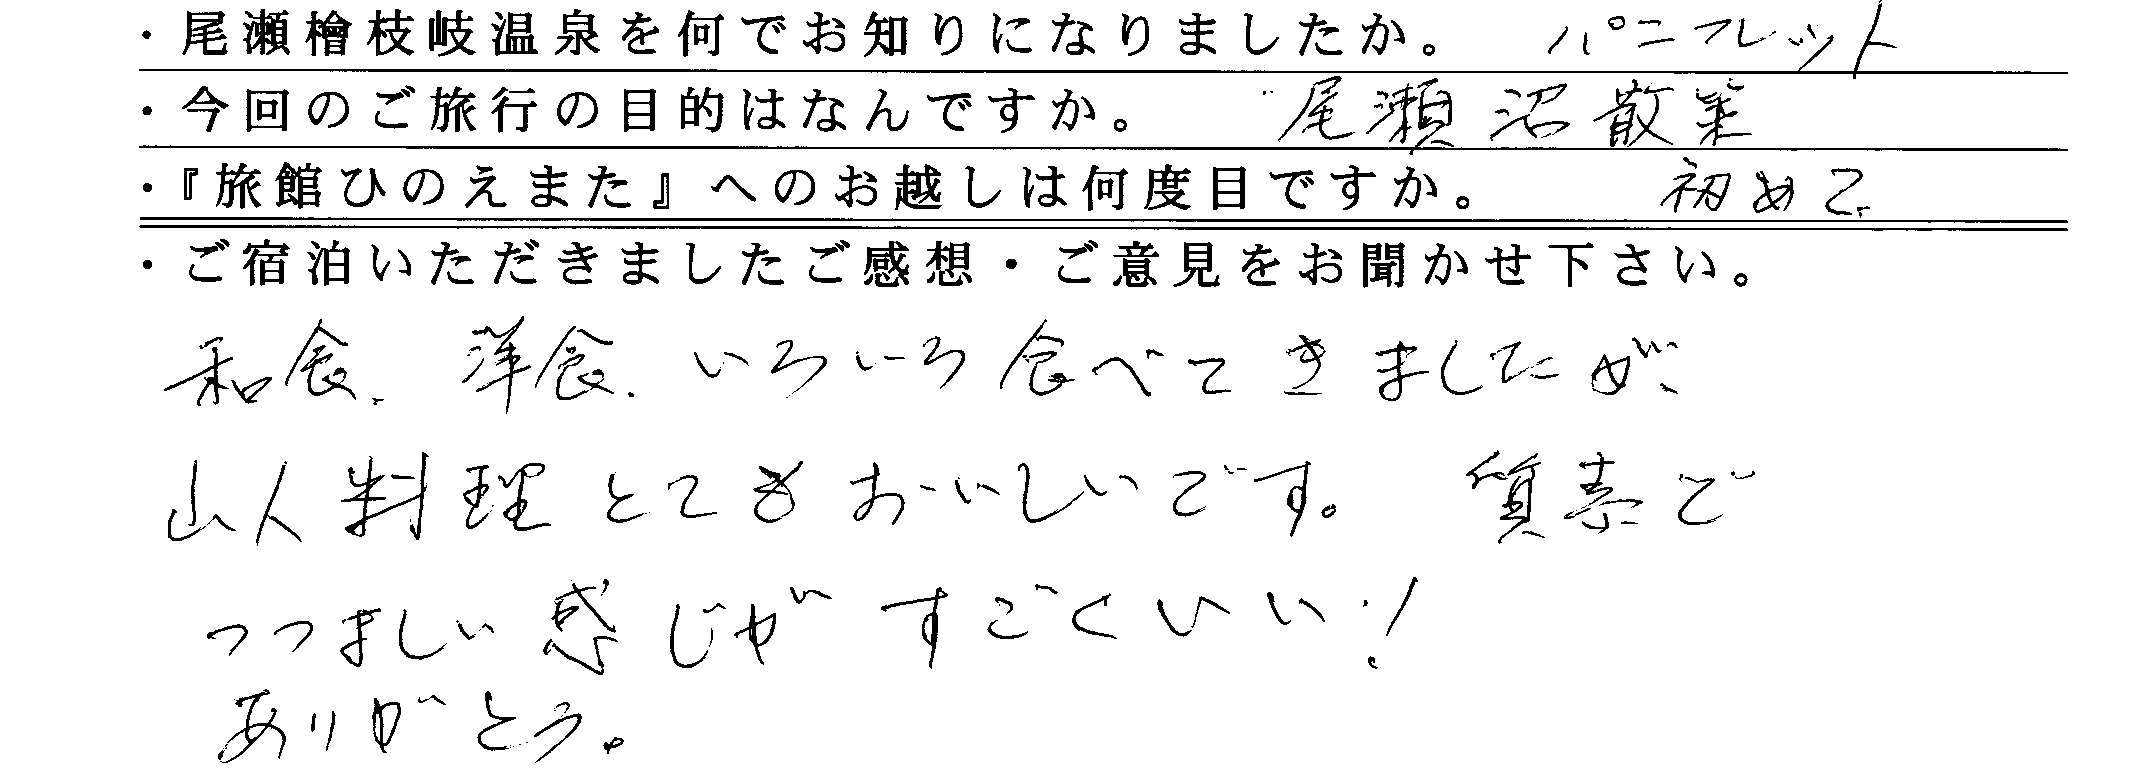 ・尾瀬檜枝岐温泉を何でお知りになりましたか。 パンフレット
・今回のご旅行の目的はなんですか。 尾瀬沼散策
・『旅館ひのえまた』へのお越しは何度目ですか。 初めて
・ご宿泊いただきましたご感想・ご意見をお聞かせ下さい。
和食、洋食、いろいろ食べてきましたが、
山人料理とてもおいしいです。 質素で
つつましい感じがすごくいい!
ありがとう。